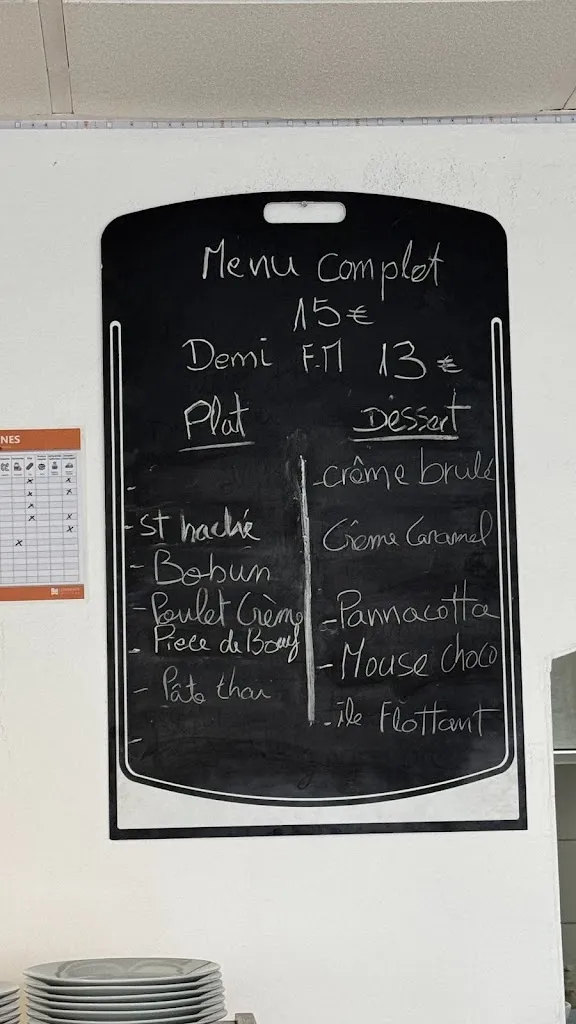 Menu complet
15€
Demi F.M 13€
Plat
-
- St haché
- Bobun
- Poulet Crème
- Piece de Boeuf
- Pâte thai
-
Déssert
- crême brulé
Crème Caramel
- Pannacotta
- Mouse choco
- île Flottant
NES